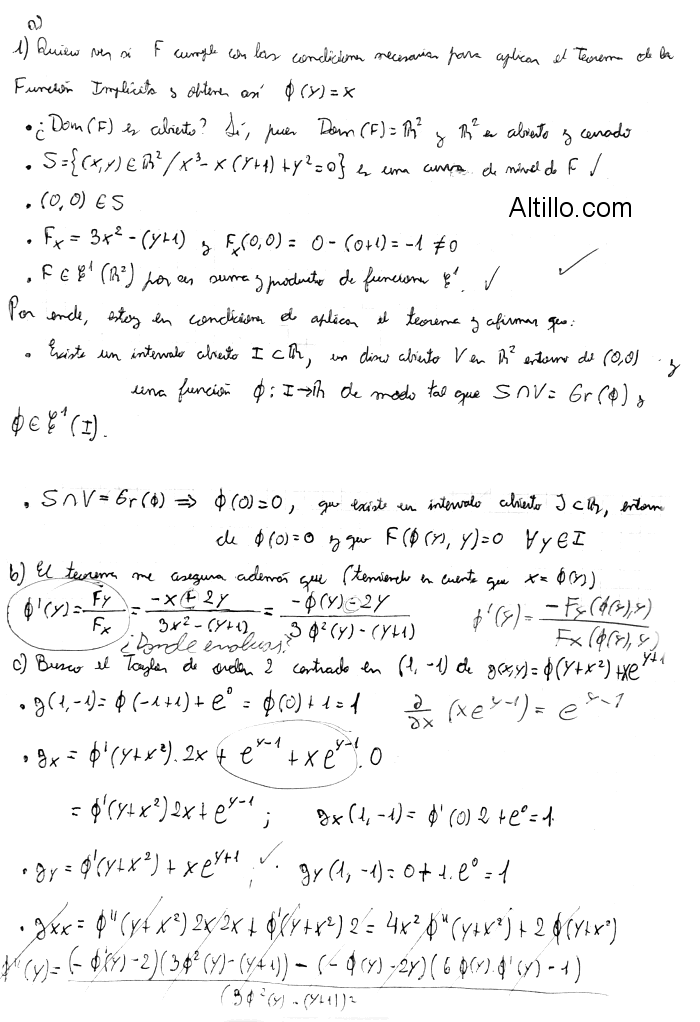 a)
1) Quiero ver si F cumple con las condiciones necesarias para aplicar el Teorema de la
Función Implícita y obtener así ϕ(y)=x
• ¿Dom(F) es abierto? Sí, pues Dom(F)=ℝ² y ℝ² es abierto y cerrado
• S={(x,y)∈ℝ²/x³-x(y+1)+y²=0} es una curva de nivel de F ✓
• (0,0)∈S
Altillo.com
• Fx = 3x²-(y+1) y Fx(0,0) = 0-(0+1)=-1 ≠0 ✓
• F∈C¹(ℝ²) por ser suma y producto de funciones C¹. ✓
Por ende, estoy en condiciones de aplicar el teorema y afirmar que:
• Existe un intervalo abierto I⊂ℝ, un disco abierto V en ℝ² entorno de (0,0) y
una función ϕ: I→ℝ de modo tal que S∩V = Gr(ϕ) y
ϕ∈C¹(I).
• S∩V=Gr(ϕ) ⟹ ϕ(0)=0, que existe un intervalo abierto J⊂ℝ, entorno
de ϕ(0)=0 y que F(ϕ(y), y)=0 ∀y∈I
b) El teorema me asegura además que (teniendo en cuenta que x=ϕ(y))
ϕ'(y)=Fy/Fx = (-x+2y)/(3x²-(y+1)) = (-ϕ(y)-2y)/(3ϕ²(y)-(y+1)) ϕ'(y) = -Fy(ϕ(y),y)/Fx(ϕ(y),y)
¿Donde evaluas?
c) Busco el Taylor de orden 2 centrado en (1,-1) de g(x,y)=ϕ(y+x²)+xe^(y+1)
• g(1,-1)=ϕ(-1+1)+e⁰ = ϕ(0)+1=1 ∂/∂x (xe^(y-1)) = e^(y-1)
• gx = ϕ'(y+x²).2x + e^(y-1) + xe^(y-1).0
= ϕ'(y+x²)2x+e^(y-1) ; gx(1,-1)= ϕ'(0)2+e⁰=1
• gy = ϕ'(y+x²)+xe^(y+1) ; ✓ gy(1,-1)=0+1.e⁰=1
• gxx = ϕ''(y+x²)2x2x+ϕ'(y+x²)2 = 4x²ϕ''(y+x²)+2ϕ(y+x²)
ϕ''(y)= ((-ϕ'(y)-2)(3ϕ²(y)-(y+1)) - (-ϕ(y)-2y)(6ϕ(y).ϕ'(y)-1))/(3ϕ²(y)-(y+1))²